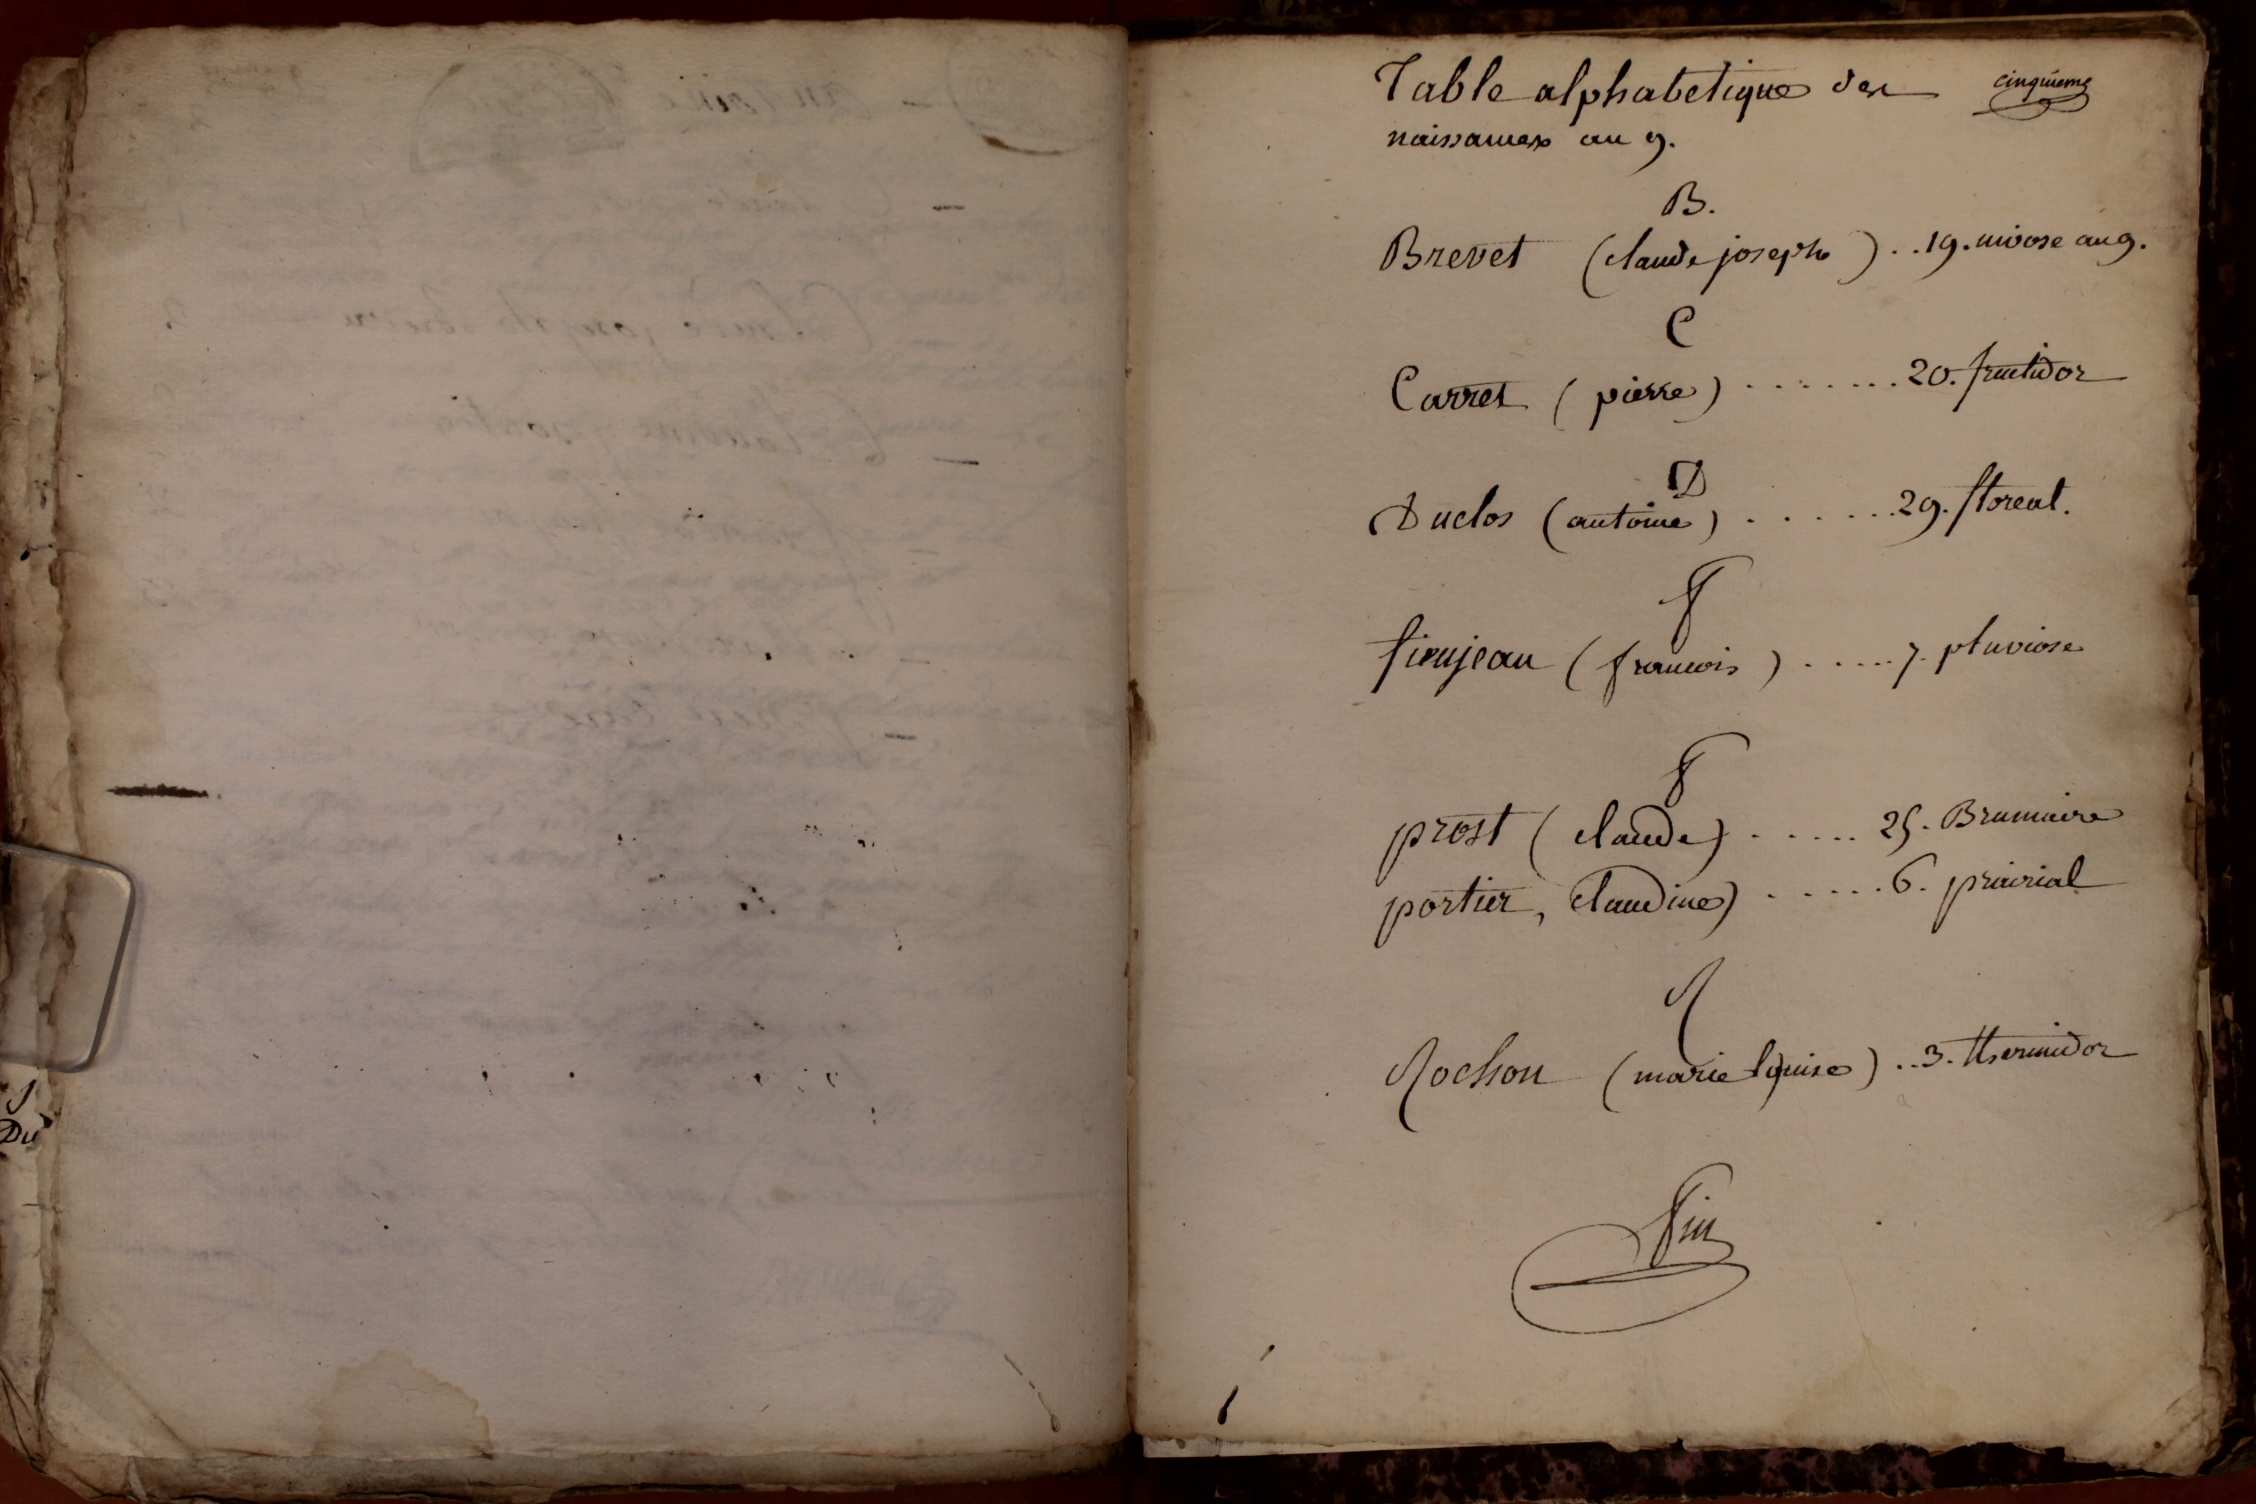 Du
Table alphabetique des cinquieme
naissances an 9.
B.
Brevet (claude joseph) .. 19. nivose an 9.
C
Carret (pierre) ........ 20. fructidor
D
Duclos (antoine) ...... 29. floreal.
F
finujeau (francois) ..... 7. pluviose
P
prost (claude) ...... 25. Brumaire
portier, claudine) ..... 6. prairial
R
Rochon (marie louise) .. 3. thermidor
fin